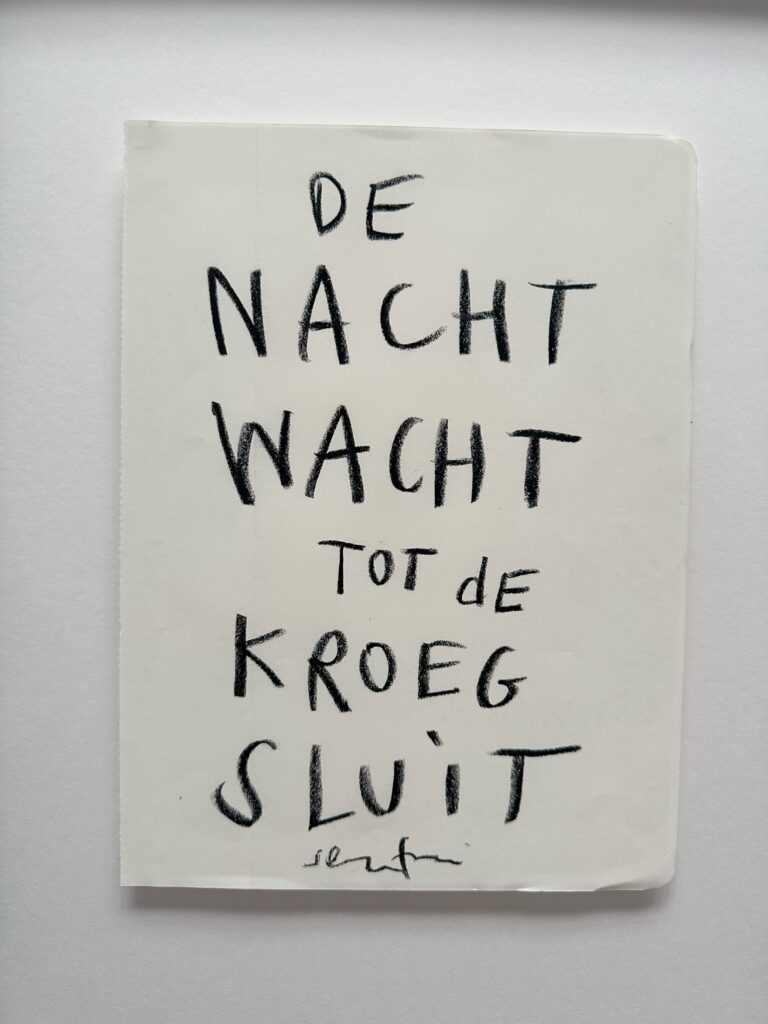 DE
NACHT
WACHT
TOT dE
KROEG
SLUiT